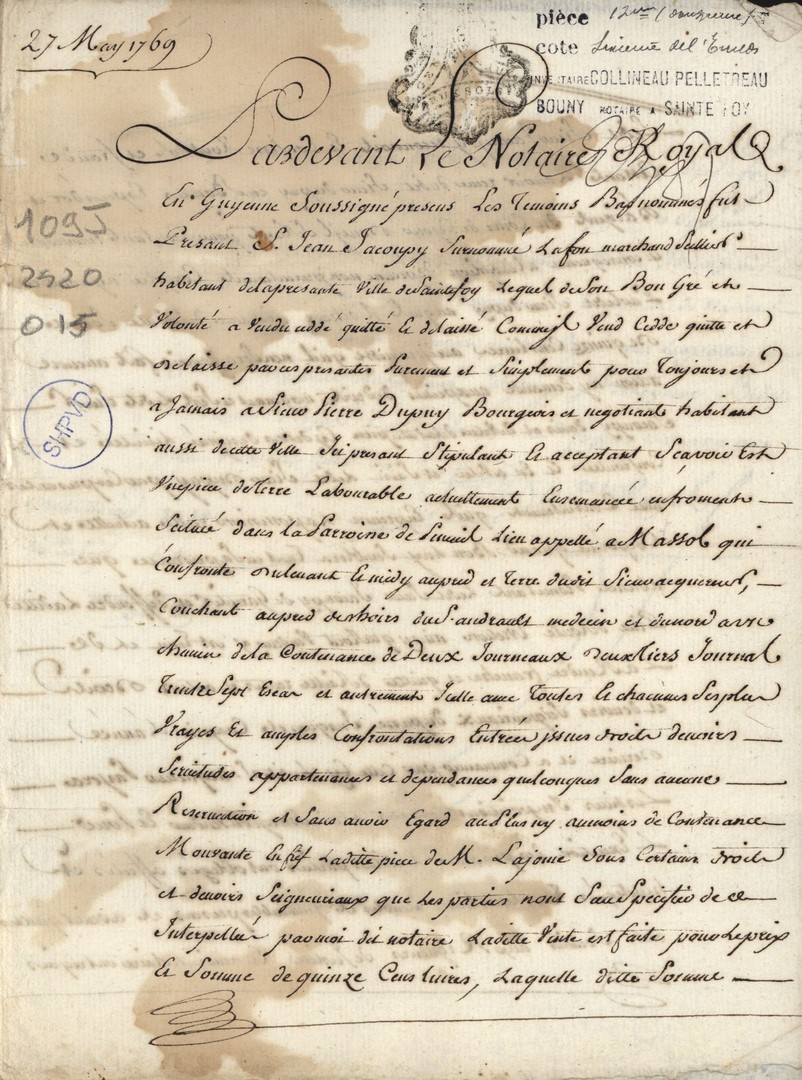 27 May 1769
pièce 12me (douzieme)
cote
INVENTAIRE COLLINEAU PELLETREAU
BOUNY NOTAIRE A SAINTE FOY
Pardevant Le Notaire Royal
En Guyenne Soussigné presens Les Temoins Bas nommés fut
Presant S. Jean Jacoupy Surnommé Lafon marchand Sellier
habitant de la presante Ville de Saintefoy Lequel de Son Bon Gré et
Volonté a Vendu cédé quitté et delaissé Comme jl Vend Cedde quitte et
delaisse par ces presantes Purement et Simplement pour Toujours et
a Jamais a Sieur Pierre Dupuy Bourgeois et negotiant habitant
aussi de cette Ville Ici presant Stipulant Et acceptant Scavoir Est
Une piece de Terre Labourable actuellement Ensemancée en froment
Scituée dans la Parroisse de Pineuil Lieu appellé a Massol qui
Confronte du levant Et midy au pred et Terre dudit Sieur acquereur,
Couchant au pred des hoirs du S. andrault medecin et du nord avec
chemin de la Contenance de Deux Journeaux deux tiers Journal
Trente Sept Escar et autrement Icelle avec Toutes Et chacunes Ses plus
Vrayes Et amples Confrontations Entrées jssues droits devoirs
Servitudes appartenances et dependances quelconques Sans aucune
Reservation et Sans avoir Egard au plus ny au moins de Contenance
Mouvante En fief Laditte piece de M. Lajonie Sous Certains droits
et devoirs Seigneuriaux que Les parties nont Seu Specifier de ce
Interpellées par moi dit notaire Laditte Vente est faite pour Le prix
Et Somme de quinze Cens livres, Laquelle ditte Somme
1095
2920
015
SHPVD